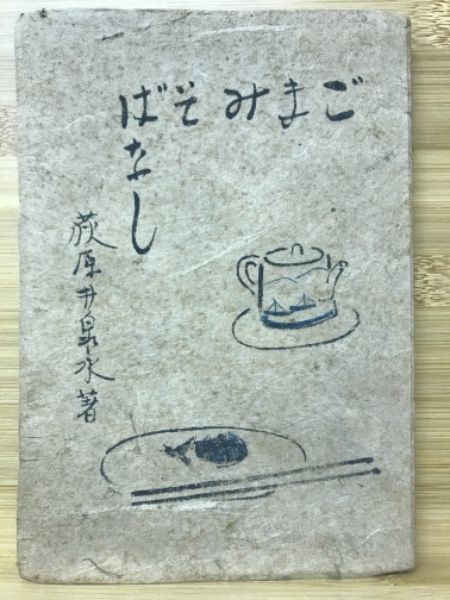 ごまみそばなし
荻原井泉水著